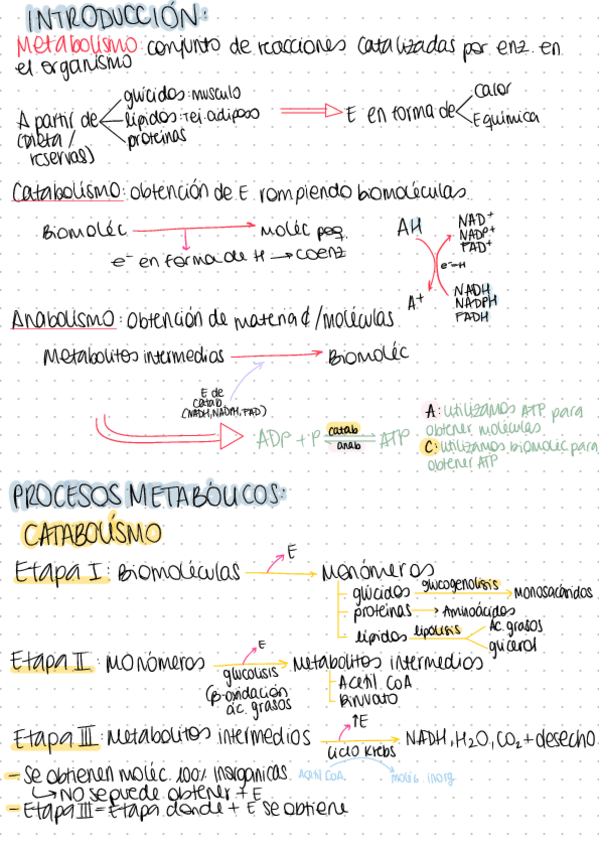 INTRODUCCIÓN:
Metabolismo: conjunto de reacciones catalizadas por enz. en
el organismo
A partir de
(dieta /
reservas)
glúcidos: musculo
lípidos: tej. adiposo
proteinas
E en forma de
calor
E química
Catabolismo: obtención de E rompiendo biomoléculas.
Biomoléc
Moléc peq.
e⁻ en forma de H → coenz
AH
NAD⁺
NADP⁺
FAD⁺
e⁻ H
A⁺
NADH
NADPH
FADH
Anabolismo: obtención de materia ¢/moléculas
Metabolitos intermedios
Biomoléc
E de
catab
(NADH, NADPH, FAD)
ADP + P
catab
anab
ATP
A: utilizamos ATP para
obtener moléculas.
C: utilizamos biomoléc para
obtener ATP
PROCESOS METABÓLICOS:
CATABOLISMO
Etapa I: Biomoléculas
E
Monómeros
glúcidos glucogenolisis Monosacáridos.
proteinas → Aminoácidos
lípidos lipolisis
Ac. grasos
glicerol
Etapa II: Monómeros
E
glucolisis
(β-oxidación
ác. grasos
Metabolitos intermedios
Acetil CoA
Piruvato
Etapa III: Metabolitos intermedios
↑E
Ciclo Krebs
NADH, H₂O, CO₂ + desecho
- Se obtienen moléc. 100% inorganicas.
Acetil CoA
moléc inorg.
↳ No se puede obtener + E
- Etapa III = Etapa donde + E se obtiene